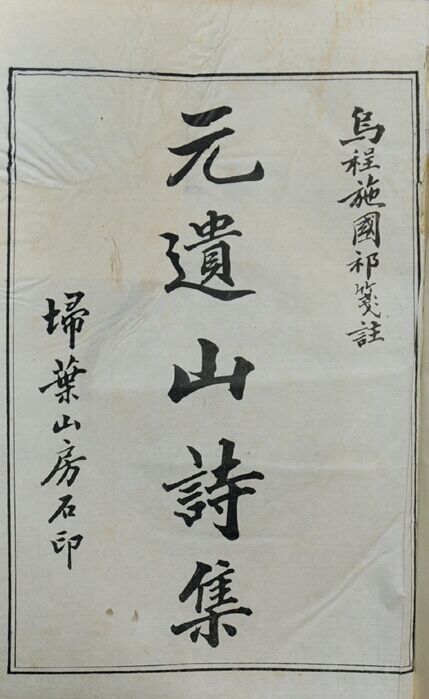 烏程施國祁箋註
元遺山詩集
埽葉山房石印